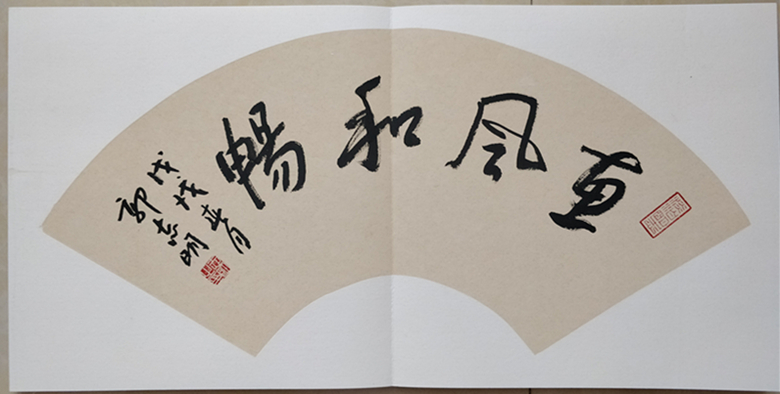 惠风和畅
戊戌春月
郭志明